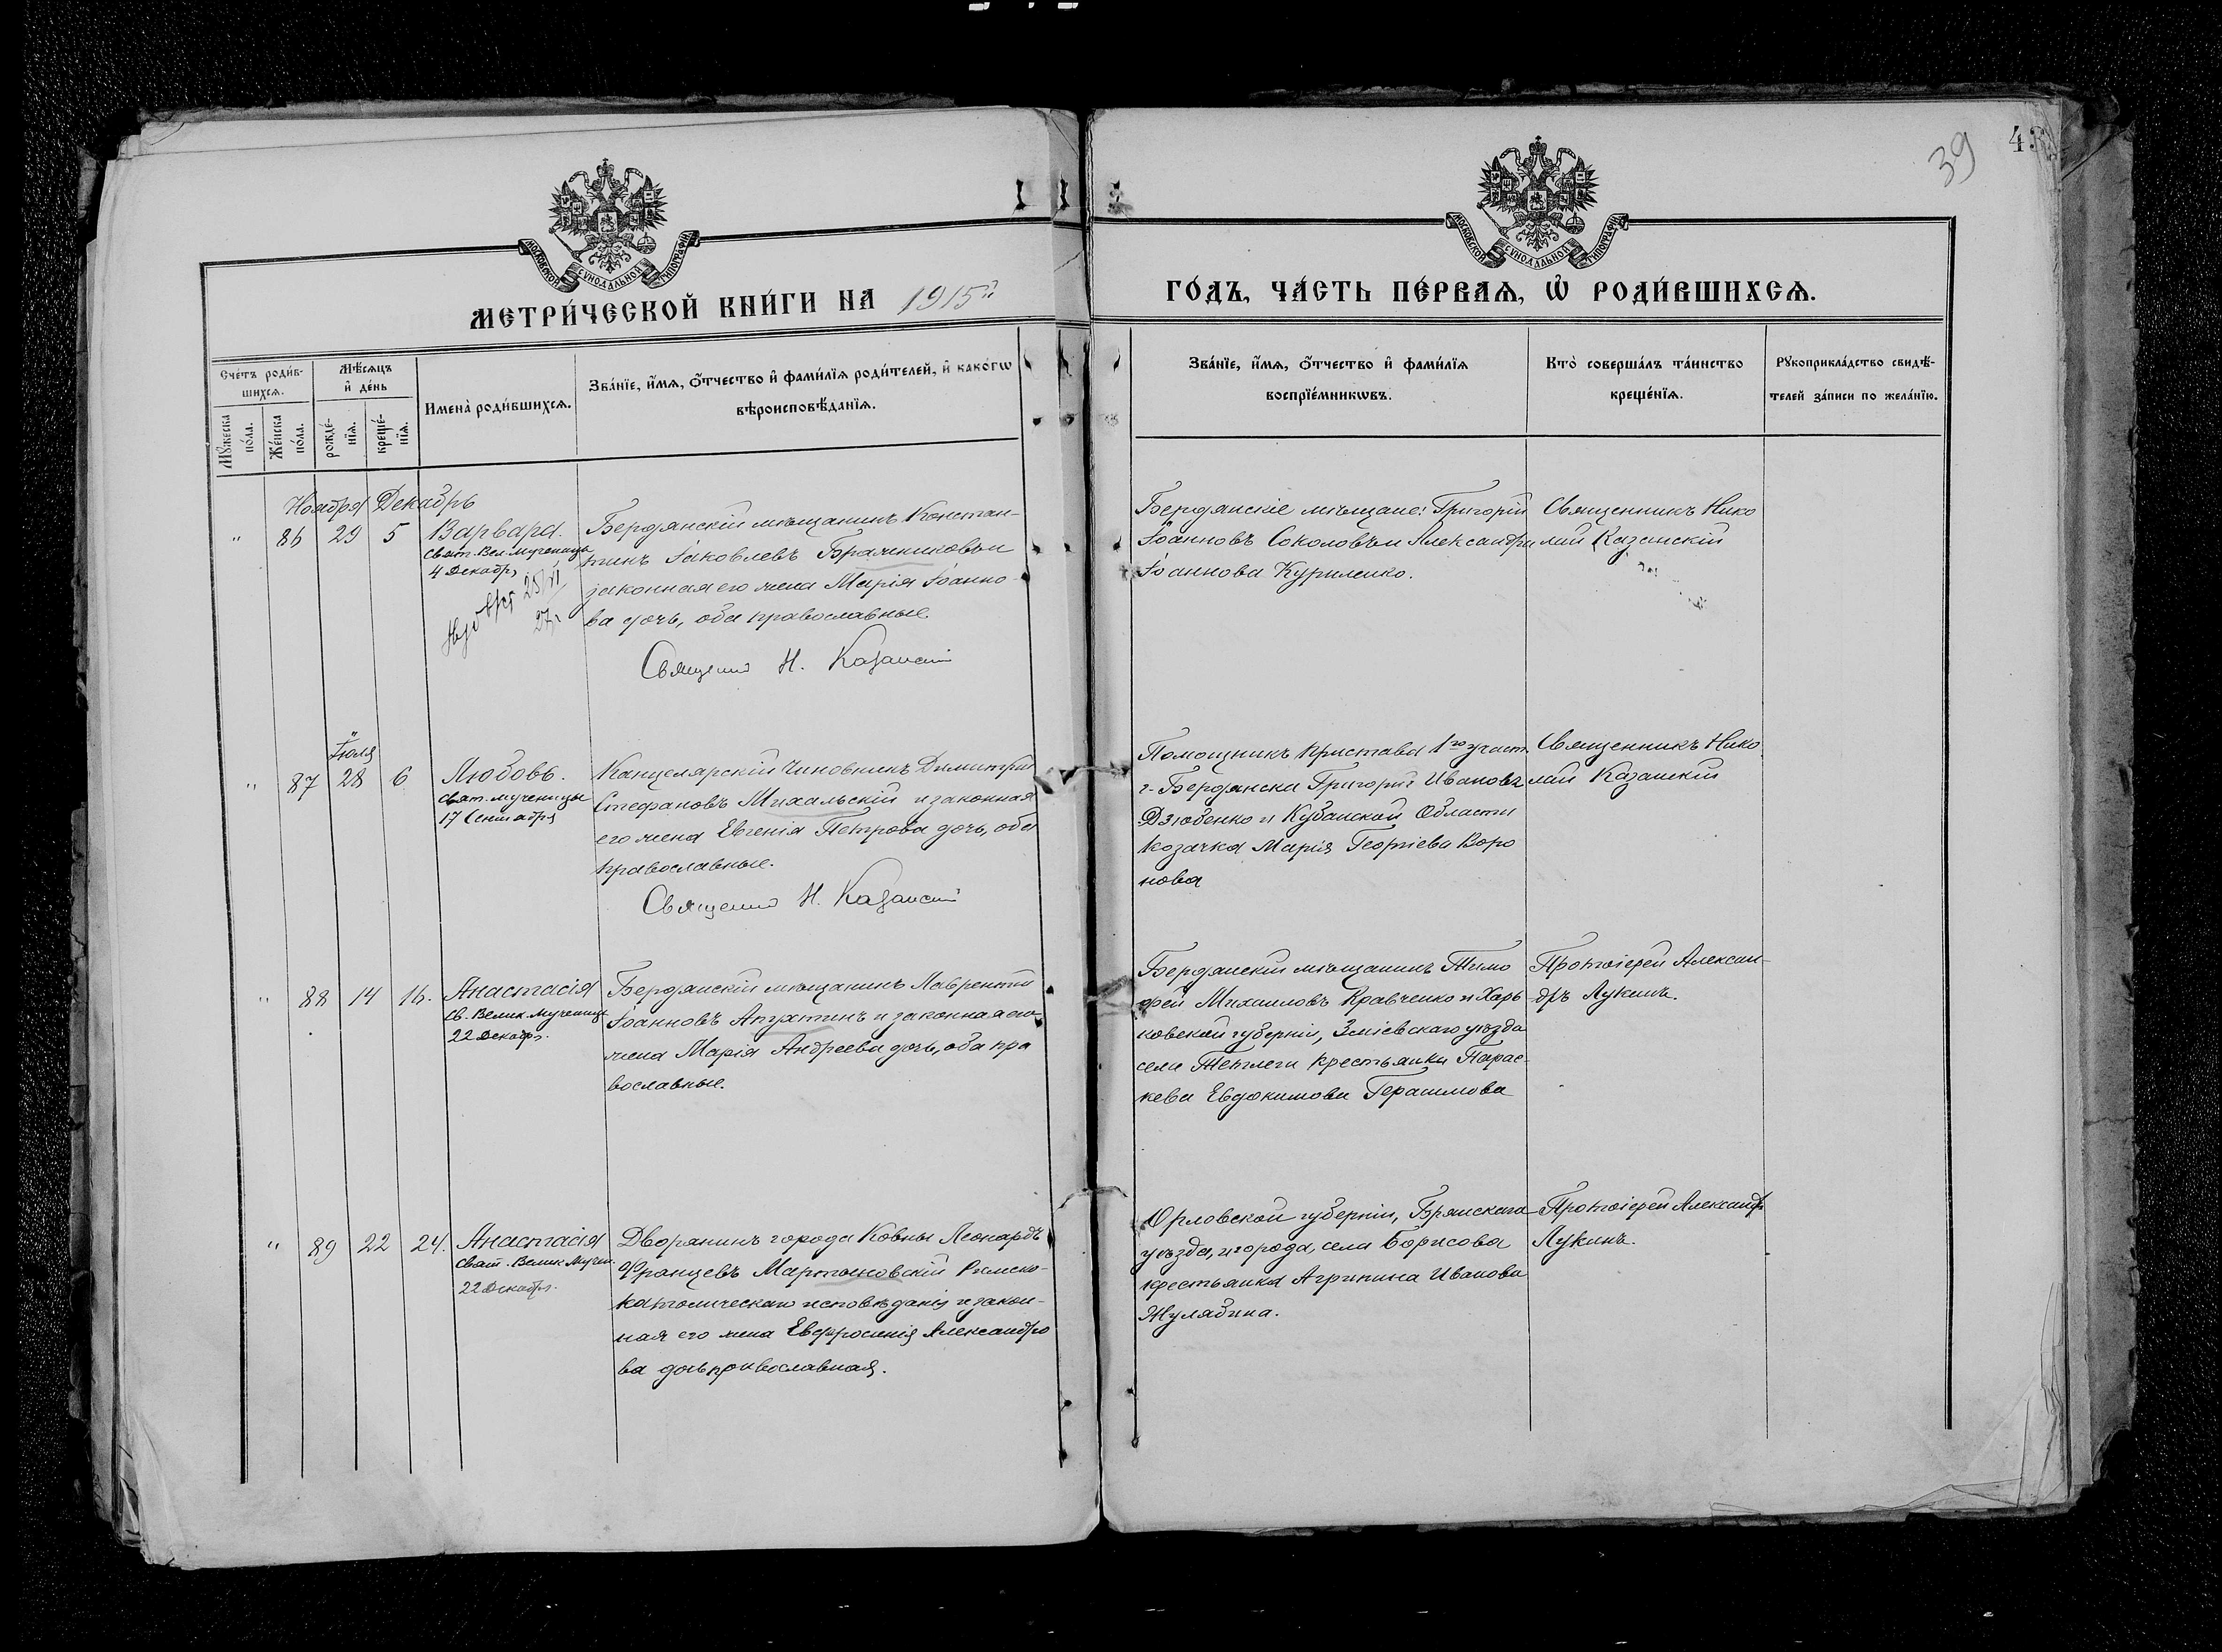 39
МОСКОВСКОЙ СѴНОДАЛЬНОЙ ТИПОГРАФІИ
МОСКОВСКОЙ СѴНОДАЛЬНОЙ ТИПОГРАФІИ
МЕТРИ́ЧЕСКОЙ КНИ́ГИ НА 1915й
ГО́ДЪ, ЧА́СТЬ ПЕ́РВАѦ, Ѡ҆ РОДИ́ВШИХСѦ.
Сче́тъ роди́в-
шихсѧ.
Мѹ́жеска по́ла.
Же́нска по́ла.
Мѣ́сѧцъ
и҆ де́нь
рожде́-нїѧ.
креще́-нїѧ.
Имена̀ роди́вшихсѧ.
Зва́нїе, и҆́мѧ, ѻ҆́тчество и҆ фами́лїѧ роди́телей, и҆ како́гѡ
вѣроисповѣ́данїѧ.
Зва́нїе, и҆́мѧ, ѻ҆́тчество и҆ фами́лїѧ
воспрїе́мникѡвъ.
Кто̀ соверша́лъ та́инство
креще́нїѧ.
Рѹкоприкла́дство свидѣ́-
телей за́писи по жела́нїю.
Ноября Декабрь
" 86 29 5 Варвара.
Свят. Вел. Мученицы
4 Декабр,
Бердянскій мѣщанинъ Констан-
тинъ Іаковлевъ Брачниковъ и
законная его жена Марія Іоанно-
ва дочь, оба православные.
Священ Н. Казанскій
Бердянскіе мѣщане: Григорій
Іоанновъ Соколовъ и Александра
Іоаннова Куриленко.
Священникъ Нико
лай Казанскій
Іюля
" 87 28 6 Любовь.
Свят. мученицы
17 Сентября
Канцелярскій Чиновникъ Димитрій
Стефановъ Михальскій и законная
его жена Евгенія Петрова дочь, оба
православные.
Священ Н. Казанскій
Помощникъ Пристава 1го участ.
г. Бердянска Григорій Ивановъ
Дзюбенко и Кубанской Области
козачка Марія Георгіева Воро
нова
Священникъ Нико
лай Казанскій
" 88 14 16. Анастасія
Св. Велик. Мученицы
22 Декабр.
Бердянскій мѣщанинъ Лаврентій
Іоанновъ Апухтинъ и законная его
жена Марія Андреева дочь, оба пра
вославные.
Бердянскій мѣщанинъ Тимо
фей Михаиловъ Кравченко и Харь
ковской губерніи, Зміевскаго уѣзда
села крестьянка Парас-
кева Евдокимова Герасимова
Протоіерей Алексан-
дръ Лукинъ.
" 89 22 24. Анастасія
Свят. Велик. Мучен.
22 Декабр.
Дворянинъ города Ковны Леонардъ
Францевъ Мартыновскій Римско-
католическаго исповѣданія и закон-
ная его жена Евфросинія Александро
ва дочь православная.
Орловской губерніи, Брянскаго
уѣзда, и города, села Борисова
крестьянка Агрипина Иванова
Жулябина.
Протоіерей Александръ
Лукинъ.